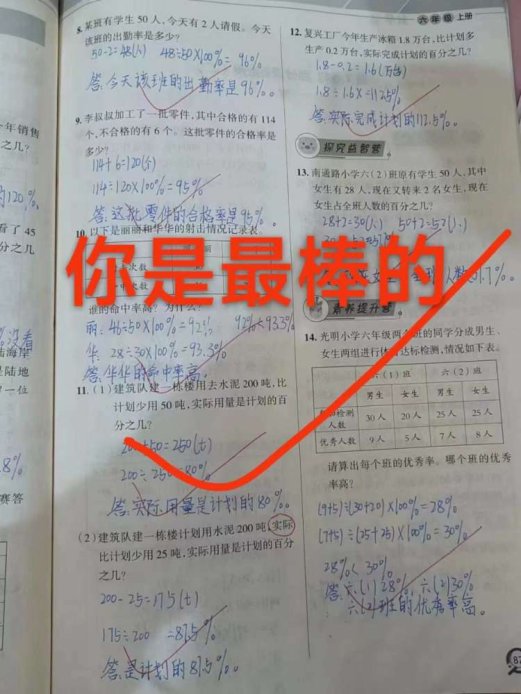 六年级 上册
8. 某班有学生 50 人,今天有 2 人请假。今天
该班的出勤率是多少?
50-2=48(人) 48÷50×100%=96%
答:今天该班的出勤率是96%。
9. 李叔叔加工了一批零件,其中合格的有 114
个,不合格的有 6 个。这批零件的合格率是
多少?
114+6=120(个)
114÷120×100%=95%
答:这批零件的合格率是95%。
10. 以下是丽丽和华华的射击情况记录表。
次数
次数
谁的命中率高?为什么?
丽:46÷50×100%=92% 92%<93.3%
华:28÷30×100%≈93.3%
答:华华的命中率高。
11. (1) 建筑队建一栋楼用去水泥 200 吨,比
计划少用 50 吨,实际用量是计划的百
分之几?
200+50=250(t)
200÷250=80%
答:实际用量是计划的80%。
(2) 建筑队建一栋楼计划用水泥 200 吨,实际
比计划少用 25 吨,实际用量是计划的百分
之几?
200-25=175(t)
175÷200=87.5%
答:是计划的87.5%。
12. 复兴工厂今年生产冰箱 1.8 万台,比计划多
生产 0.2 万台,实际完成计划的百分之几?
1.8-0.2=1.6(万台)
1.8÷1.6×=112.5%
答:实际完成计划的112.5%。
探究益智营
13. 南通路小学六(2)班原有学生 50 人,其中
女生有 28 人,现在又转来 2 名女生,现在
女生占全班人数的百分之几?
28+2=30(人) 50+2=52(人)
人数的
你是最棒的
素养提升营
14. 光明小学六年级两个班的同学分成男生、
女生两组进行体育达标检测,情况如下表。
六(1)班 六(2)班
男生 女生 男生 女生
参加检测
人数 30 人 20 人 25 人 25 人
优秀人数 9人 5人 7人 8人
请算出每个班的优秀率。哪个班的优秀
率高?
(9+5)÷(30+20)×100%=28%
(7+8)÷(25+25)×100%=30%
28%<30%
答:六(1)28%,六(2)30%
六(2)班的优秀率高。
年销售
之几?
120%
看了 45
分之几
没看
陆海岸
是陆地
一位
8%
赛答